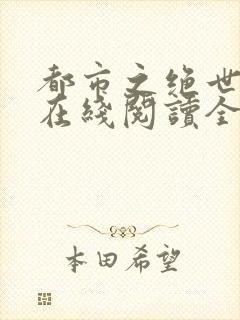 都市之绝世
在綫閱讀全
本田希望